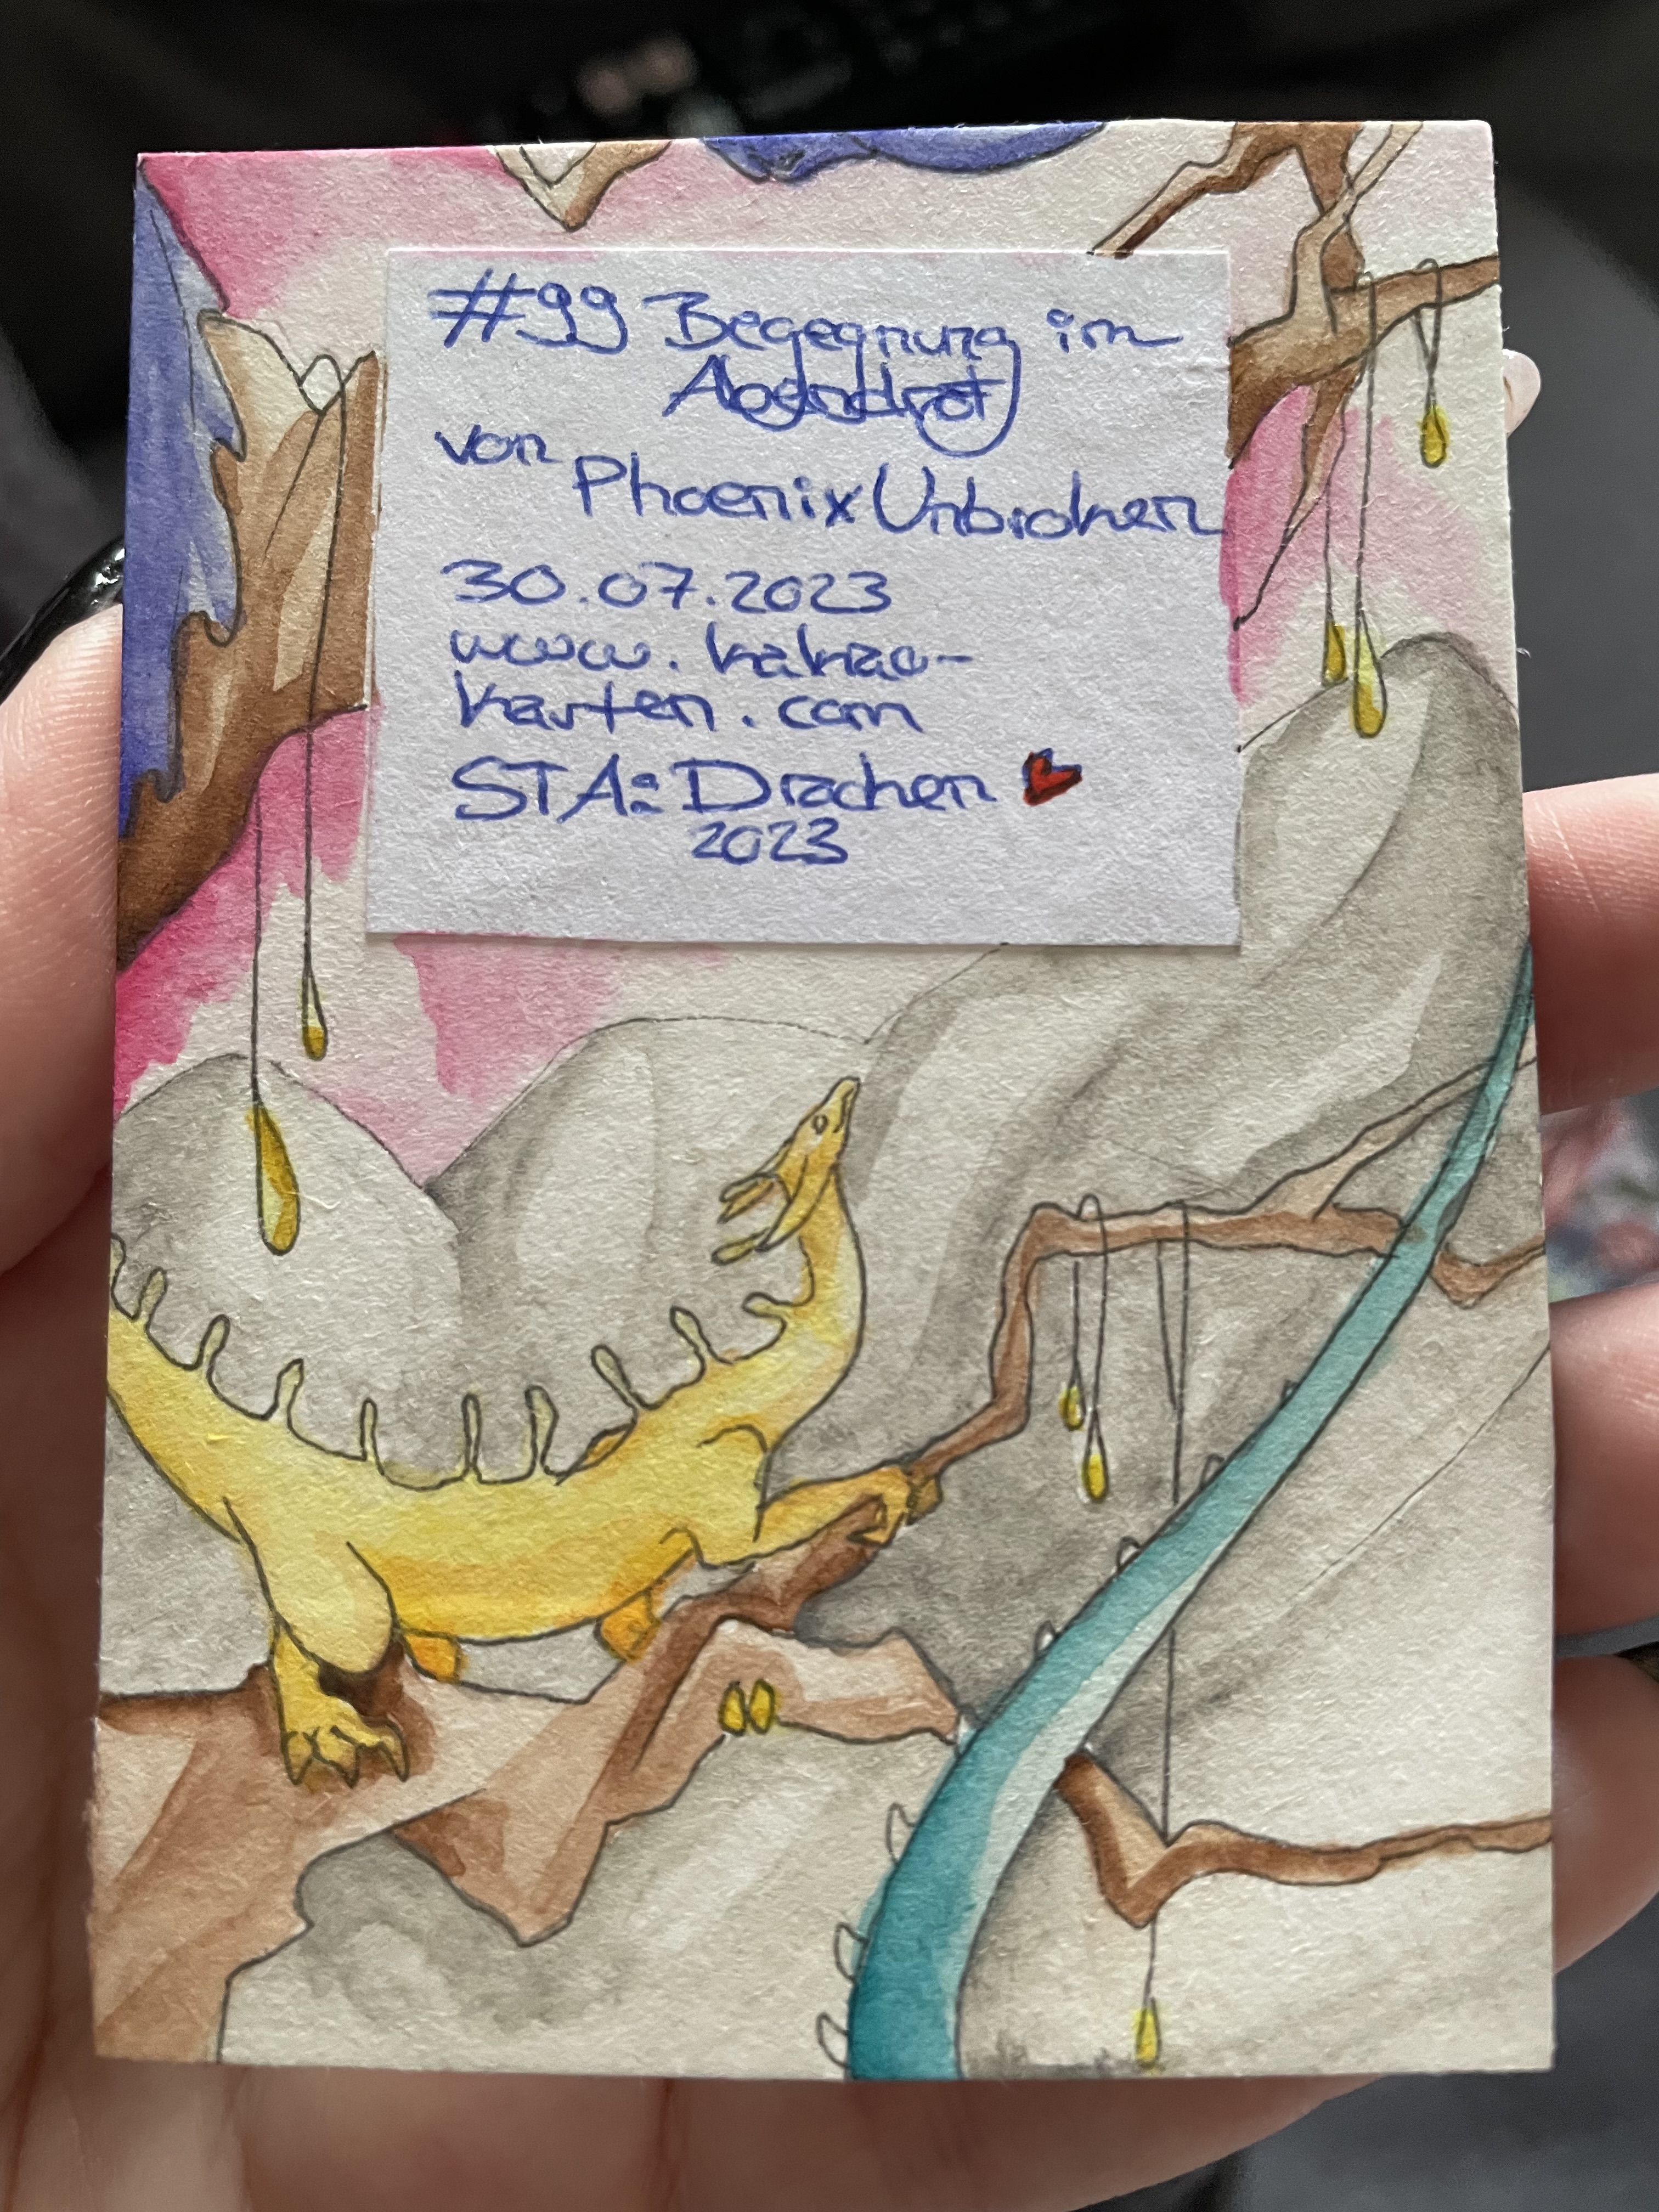 #99 Begegnung im
Abendrot
von
PhoenixUnbroken
30.07.2023
www.kakao-
karten.com
STA: Drachen
2023